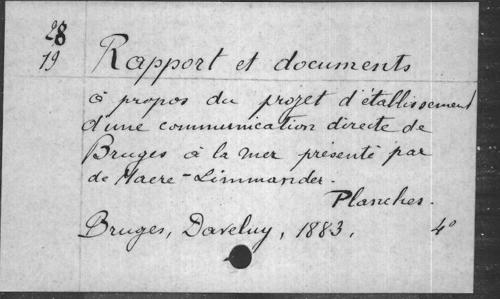 28
19
Rapport et documents
à propos du projet d'établissement
d'une communication directe de
Bruges à la mer présenté par
de Maere-Limnander.
Planches.
Bruges, Daveluy, 1883. 4°